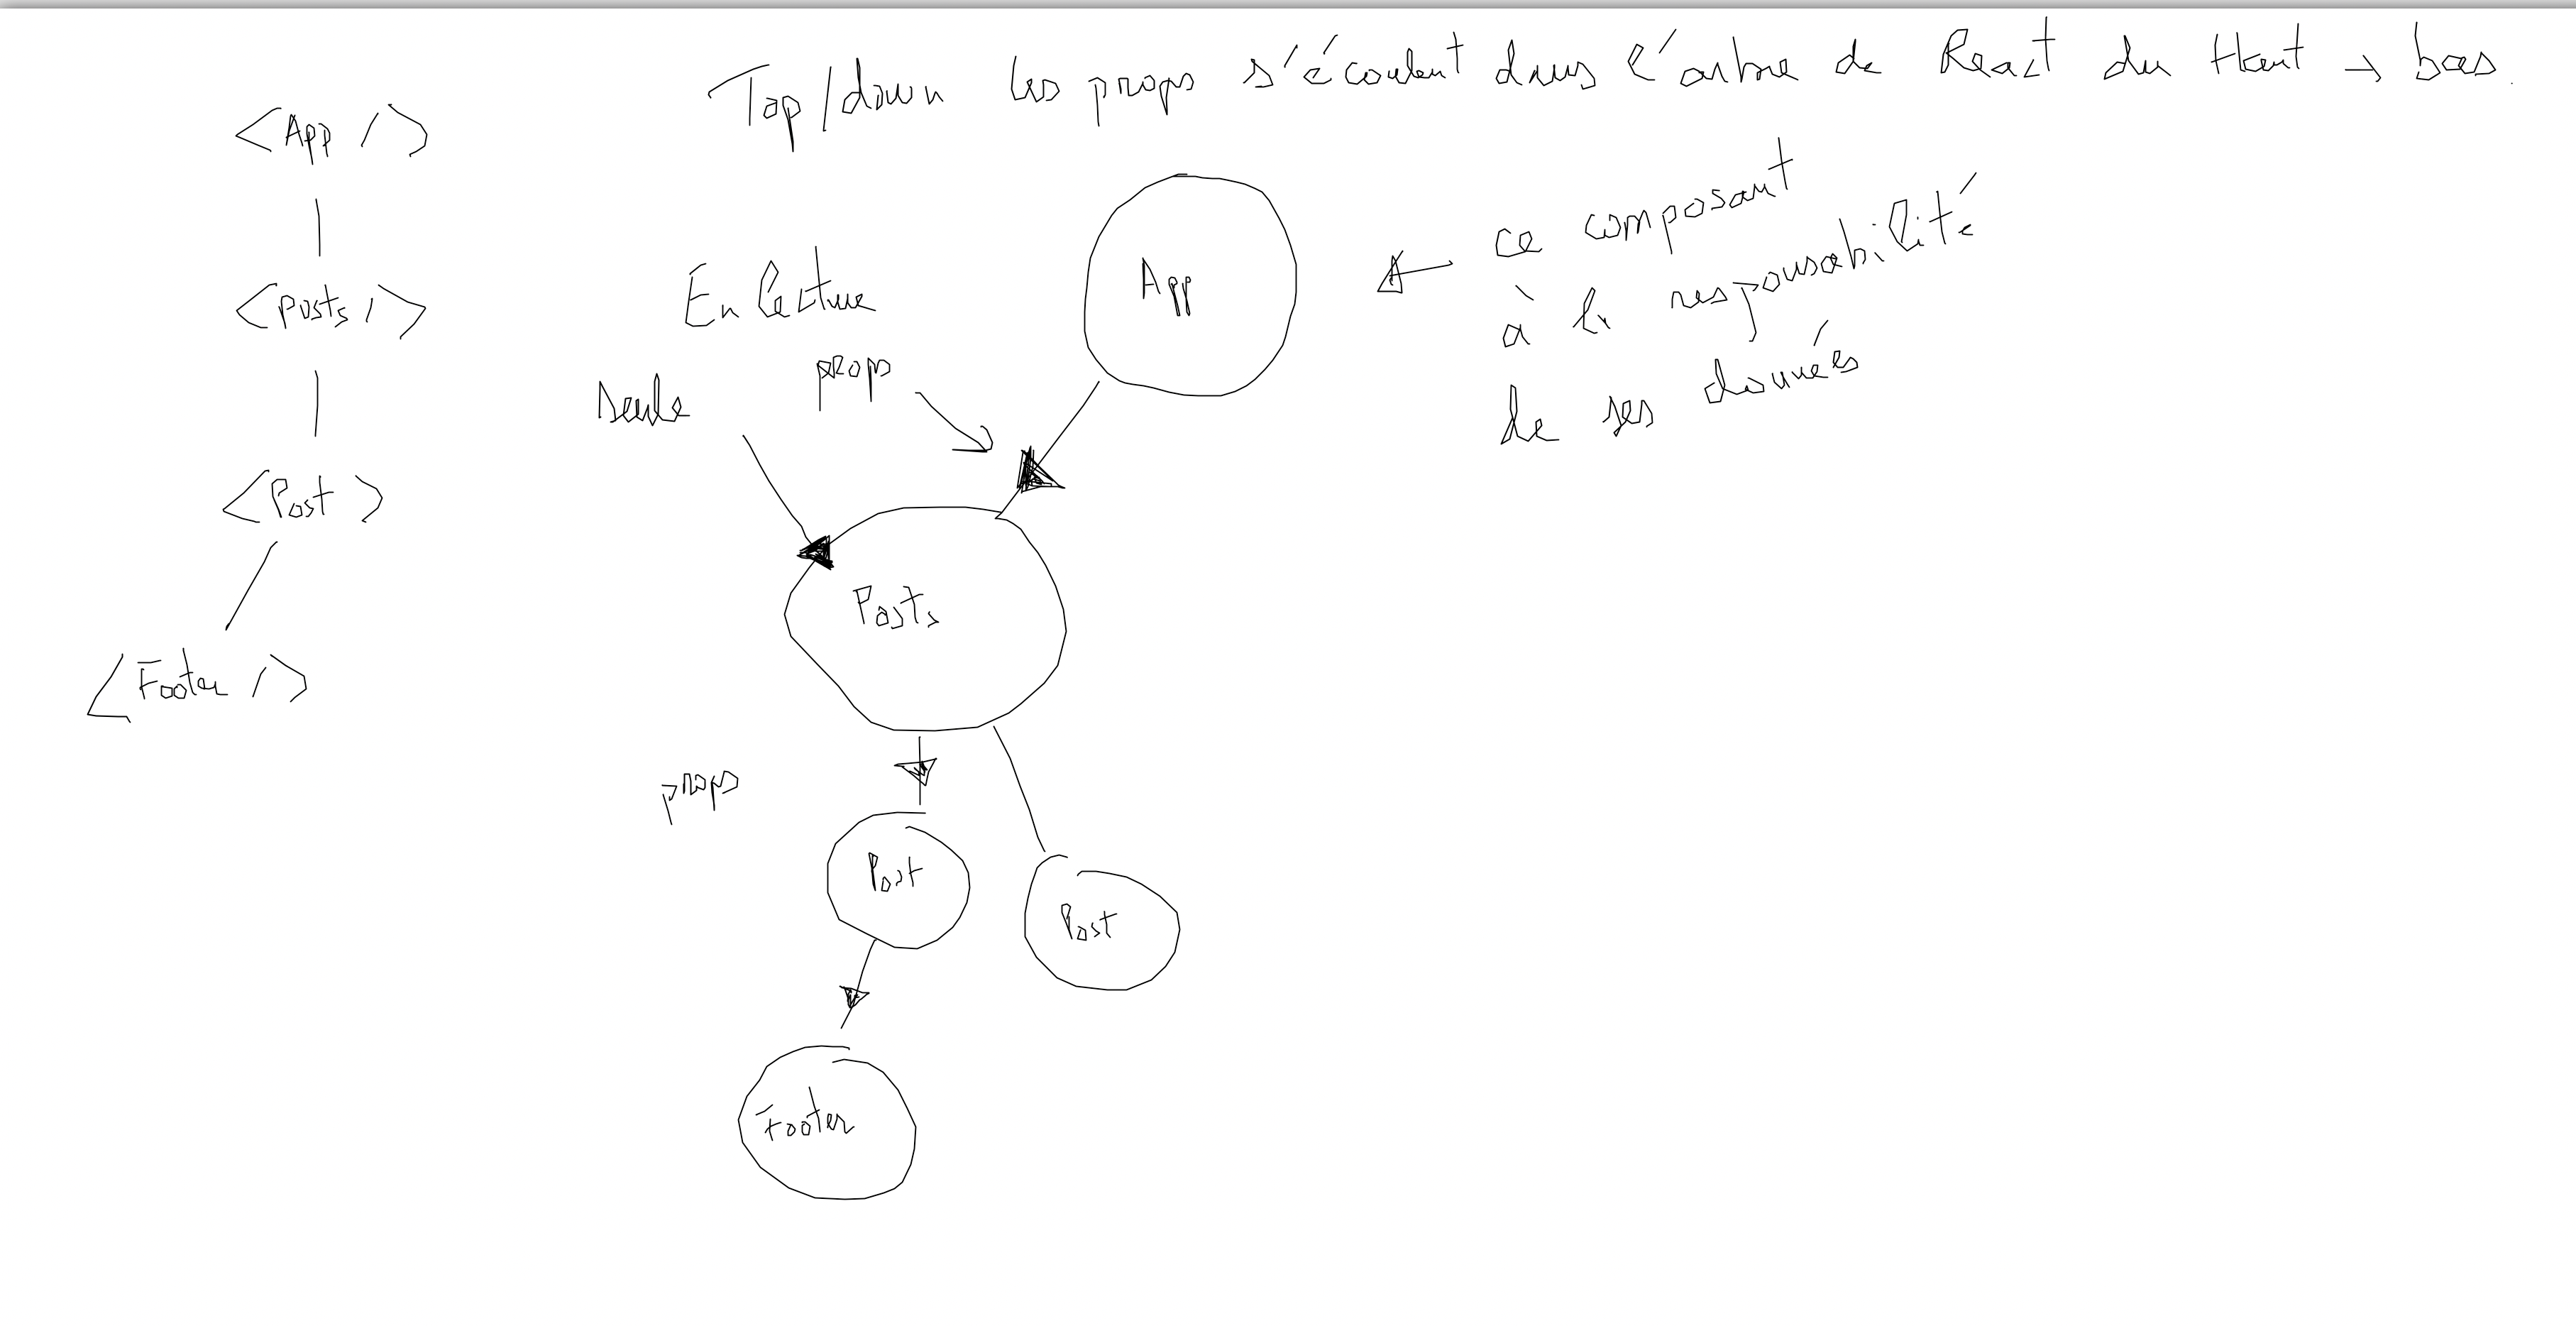 Top/down les props s'écoulent dans l'arbre de React du Haut → bas.
<App />
<Posts />
<Post >
<Footer />
En lecture
seule
props
App
ce composant
à la responsabilité
de ses données
Posts
props
Post
Post
Footer